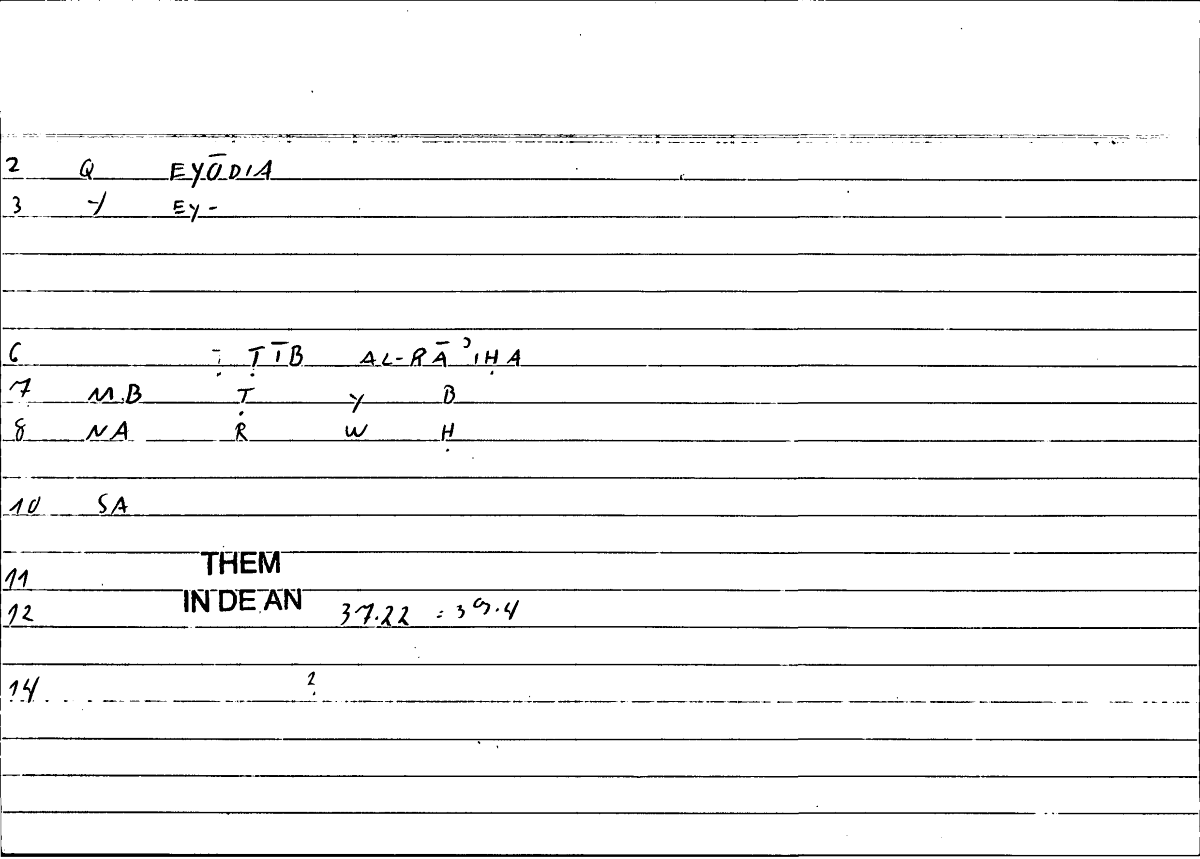 2 Q EYŌDIA
3 -/ EY-
6 ṬĪB AL-RĀʾIḤA
7 M.B Ṭ Y B
8 NA R W Ḥ
10 SA
11 THEM
12 IN DE AN 37.22 = 39.4
14 2